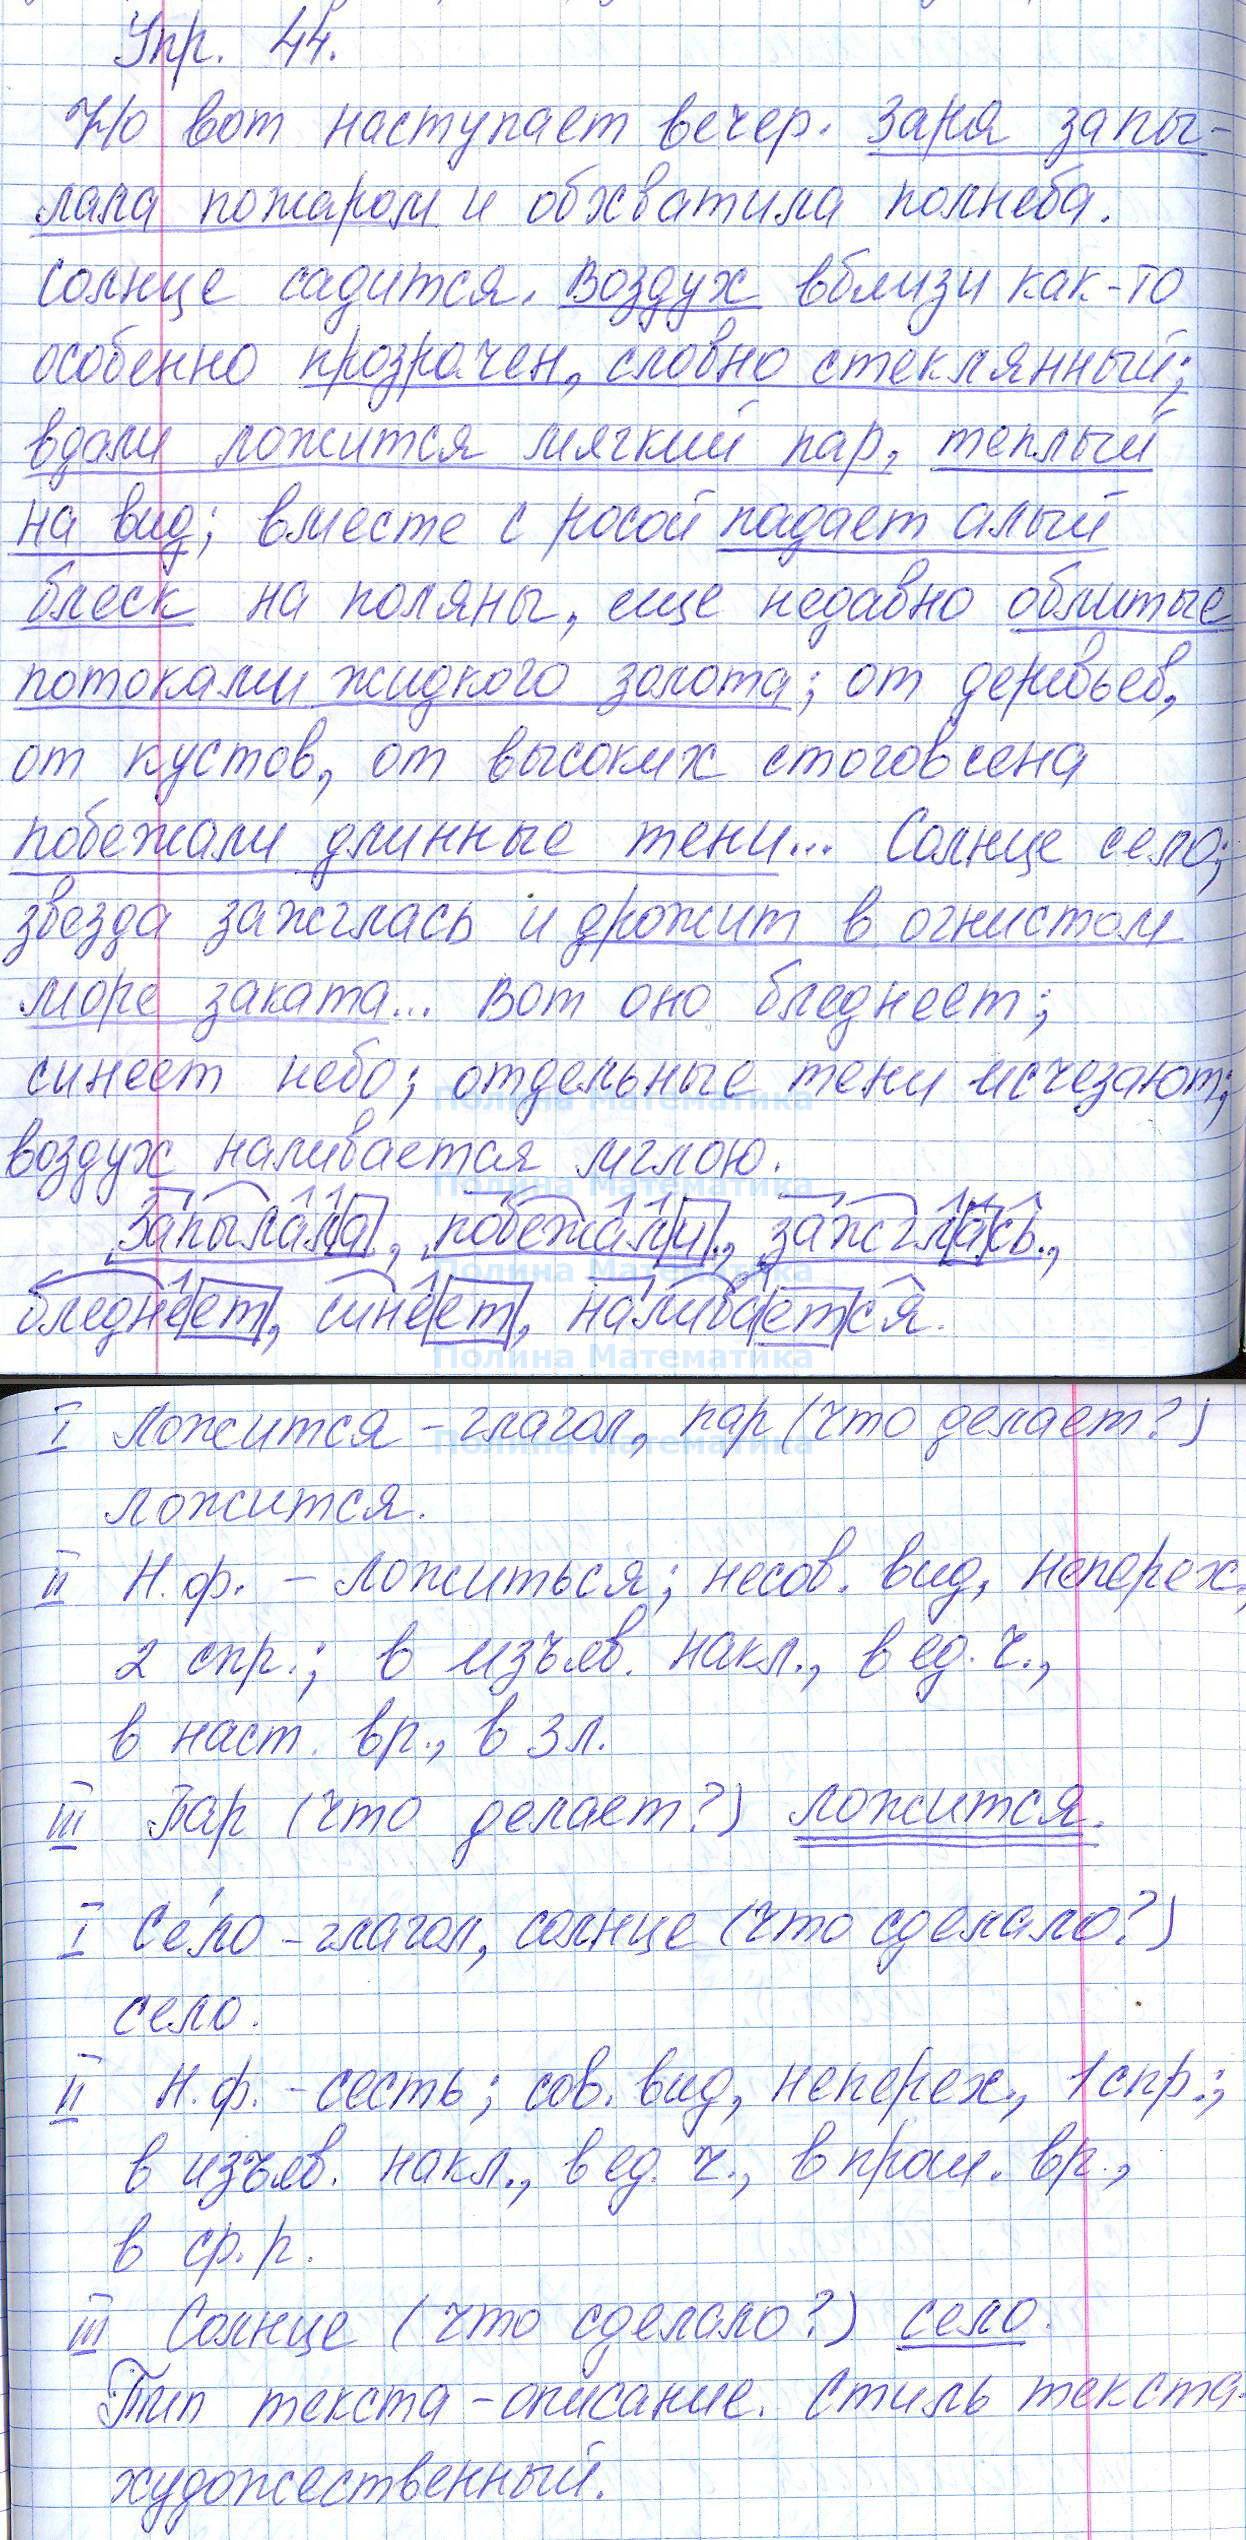 Упр. 44.
Но вот наступает вечер. Заря запы-
лала пожаром и обхватила полнеба.
Солнце садится. Воздух вблизи как-то
особенно прозрачен, словно стеклянный;
вдали ложится мягкий пар, теплый
на вид; вместе с росой падает алый
блеск на поляны, еще недавно облитые
потоками жидкого золота; от деревьев,
от кустов, от высоких стогов сена
побежали длинные тени... Солнце село;
звезда зажглась и дрожит в огнистом
море заката... Вот оно бледнеет;
синеет небо; отдельные тени исчезают;
воздух наливается мглою.
Запылала, побежали, зажглась,
бледнеет, синеет, наливается.
I Ложится - глагол, пар (что делает?)
ложится.
II Н.ф. - ложиться; несов. вид, неперех,
2 спр.; в изъяв. накл., в ед. ч.,
в наст. вр., в 3 л.
III Пар (что делает?) ложится.
I Се́ло - глагол, солнце (что сделало?)
село.
II Н.ф. - сесть; сов. вид, неперех., 1 спр.;
в изъяв. накл., в ед. ч., в прош. вр.,
в ср. р.
III Солнце (что сделало?) село.
Тип текста - описание. Стиль текста-
художественный.
Полина Математика
Полина Математика
Полина Математика
Полина Математика
Полина Математика